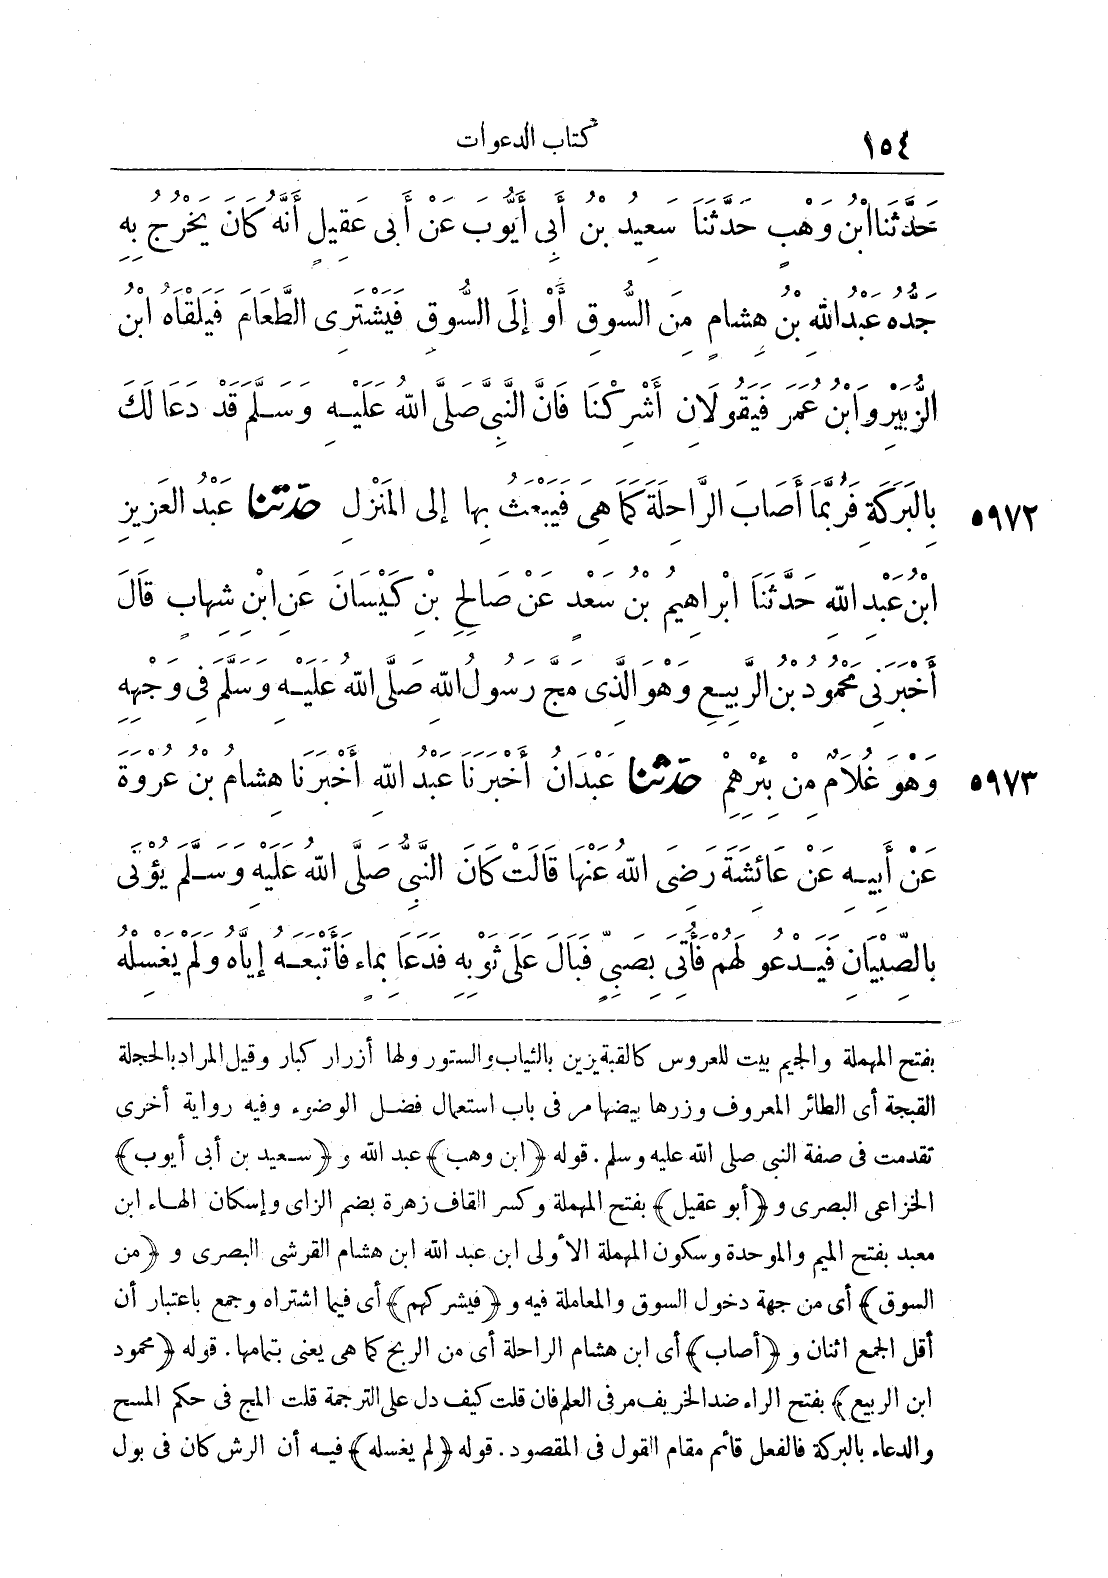 ١٥٤ كتاب الدعوات
حَدَّثَنَا ابْنُ وَهْبٍ حَدَّثَنَا سَعِيدُ بْنُ أَبِي أَيُّوبَ عَنْ أَبِى عَقِيلٍ أَنَّهُ كَانَ يَخْرُجُ بِهِ
جَدُّهُ عَبْدُ اللهِ بْنُ هِشَامٍ مِنَ السُّوقِ أَوْ إِلَى السُّوقِ فَيَشْتَرِى الطَّعَامَ فَيَلْقَاهُ ابْنُ
الزُّبَيْرِ وَابْنُ عُمَرَ فَيَقُولَانِ أَشْرِكْنَا فَانَّ النَّبِيَّ صَلَّى اللهُ عَلَيْهِ وَسَلَّمَ قَدْ دَعَا لَكَ
٥٩٧٢ بِالْبَرَكَةِ فَرُبَّمَا أَصَابَ الرَّاحِلَةَ كَمَا هِيَ فَيَبْعَثُ بِهَا إِلَى الْمَنْزِلِ حَدَّثَنَا عَبْدُ الْعَزِيزِ
ابْنُ عَبْدِ اللهِ حَدَّثَنَا ابْرَاهِيمُ بْنُ سَعْدٍ عَنْ صَالِحِ بْنِ كَيْسَانَ عَنِ ابْنِ شِهَابٍ قَالَ
أَخْبَرَنِى مَحْمُودُ بْنُ الرَّبِيعِ وَهُوَ الَّذِى مَجَّ رَسُولُ اللهِ صَلَّى اللهُ عَلَيْهِ وَسَلَّمَ فِى وَجْهِهِ
٥٩٧٣ وَهْوَ غُلَامٌ مِنْ بِئْرِهِمْ حَدَّثَنَا عَبْدَانُ أَخْبَرَنَا عَبْدُ اللهِ أَخْبَرَنَا هِشَامُ بْنُ عُرْوَةَ
عَنْ أَبِيهِ عَنْ عَائِشَةَ رَضِىَ اللهُ عَنْهَا قَالَتْ كَانَ النَّبِيُّ صَلَّى اللهُ عَلَيْهِ وَسَلَّمَ يُؤْتَى
بِالصِّبْيَانِ فَيَدْعُو لَهُمْ فَأُتِىَ بِصَبِيٍّ فَبَالَ عَلَى ثَوْبِهِ فَدَعَا بِمَاءٍ فَأَتْبَعَهُ إِيَّاهُ وَلَمْ يَغْسِلْهُ
بفتح المهملة والجيم بيت للعروس كالقبة يزين بالثياب والستور ولها أزرار كبار وقيل المراد بالحجلة
القبجة أى الطائر المعروف وزرها بيضها مر فى باب استعمال فضل الوضوء وفيه رواية أخرى
تقدمت فى صفة النبي صلى الله عليه وسلم. قوله ﴿ابن وهب﴾ عبد الله و ﴿سعيد بن أبى أيوب﴾
الخزاعى البصرى و ﴿أبو عقيل﴾ بفتح المهملة وكسر القاف زهرة بضم الزاى وإسكان الهاء ابن
معبد بفتح الميم والموحدة وسكون المهملة الأولى ابن عبد الله ابن هشام القرشى البصرى و ﴿من
السوق﴾ أى من جهة دخول السوق والمعاملة فيه و ﴿فيشركهم﴾ أى فيما اشتراه وجمع باعتبار أن
أقل الجمع اثنان و ﴿أصاب﴾ أى ابن هشام الراحلة أى من الربح كما هى يعنى بتمامها. قوله ﴿محمود
ابن الربيع﴾ بفتح الراء ضد الخريف مر فى العلم فان قلت كيف دل على الترجمة قلت المج فى حكم المسح
والدعاء بالبركة فالفعل قائم مقام القول فى المقصود. قوله ﴿لم يغسله﴾ فيه أن الرش كان فى بول